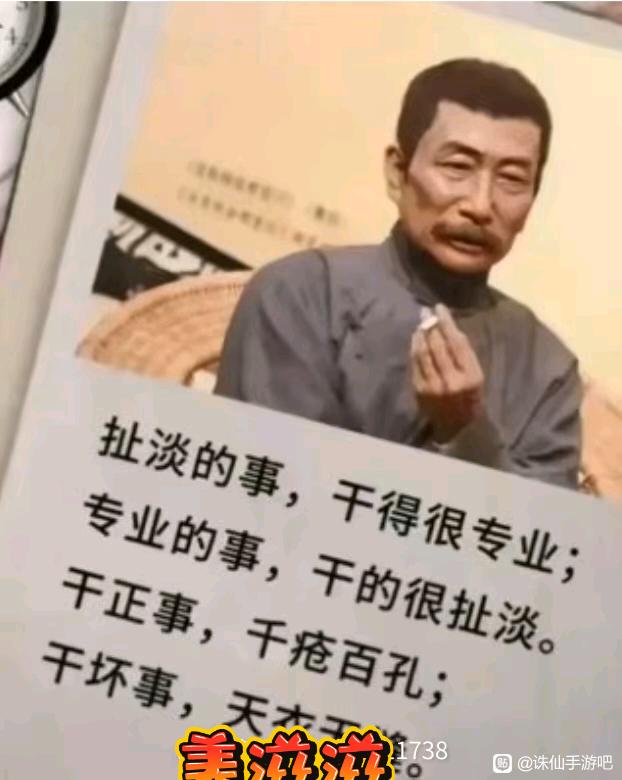 扯淡的事，干得很专业；
专业的事，干的很扯淡。
干正事，千疮百孔；
干坏事，天衣无缝。
美滋滋
1738
贴 @诛仙手游吧